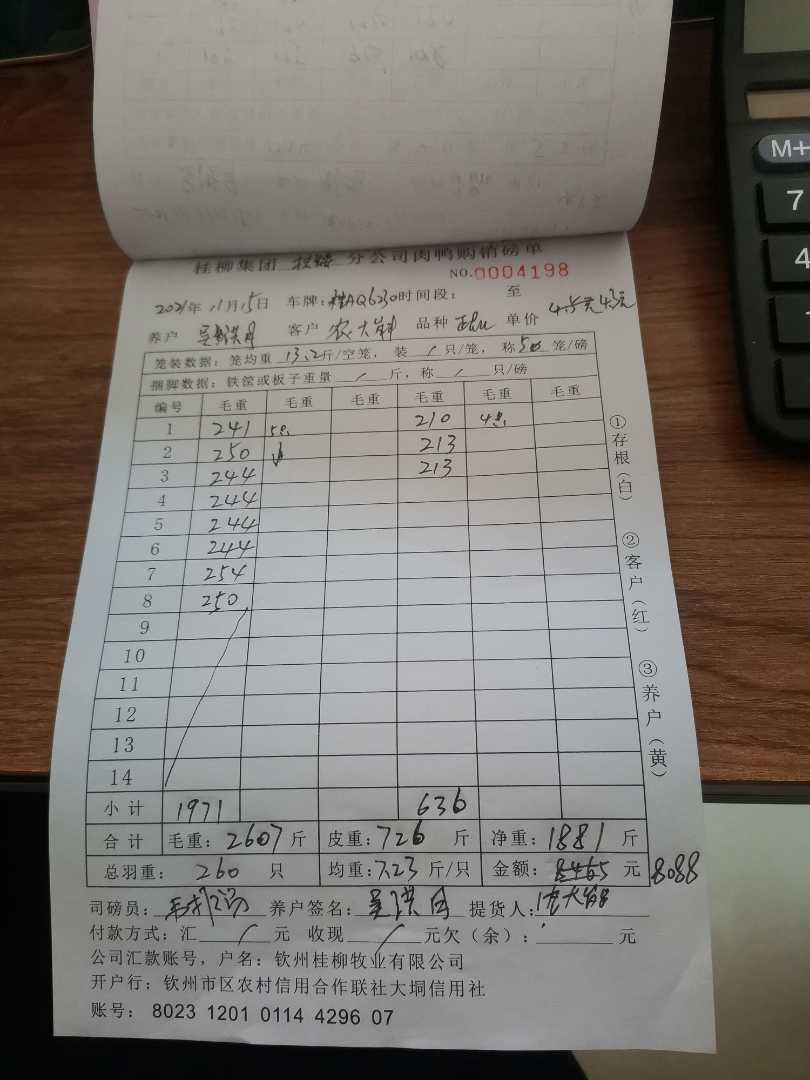 桂柳集团 分公司肉鸭购销磅单
NO.0004198
2021年11月15日 车牌:桂AQ6230 时间段: 至
养户 客户 农大 品种 单价 4.5元 4.3元
笼装数据:笼均重 13.2斤/空笼, 装 / 只/笼, 称 5 笼/磅
捆脚数据:铁筐或板子重量 / 斤,称 / 只/磅
编号 毛重 毛重 毛重 毛重 毛重 毛重
1 241 5 210 4
2 250 213
3 244 213
4 244
5 244
6 244
7 254
8 250
9
10
11
12
13
14
小计 1971 636
合计 毛重:2607斤 皮重:726 斤 净重:1881 斤
总羽重: 260 只 均重:7.23斤/只 金额:8465 元 8088
司磅员: 养户签名: 提货人:农大
付款方式:汇 / 元 收现 / 元欠(余): 元
公司汇款账号,户名:钦州桂柳牧业有限公司
开户行:钦州市区农村信用合作联社大垌信用社
账号: 8023 1201 0114 4296 07
①存根(白) ②客户(红) ③养户(黄)
M+
7
4